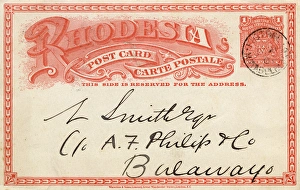 RHODESIA
POST CARD
CARTE POSTALE
THIS SIDE IS RESERVED FOR THE ADDRESS.
L Smith Esq
C/o A. F. Philip & Co
Bulawayo